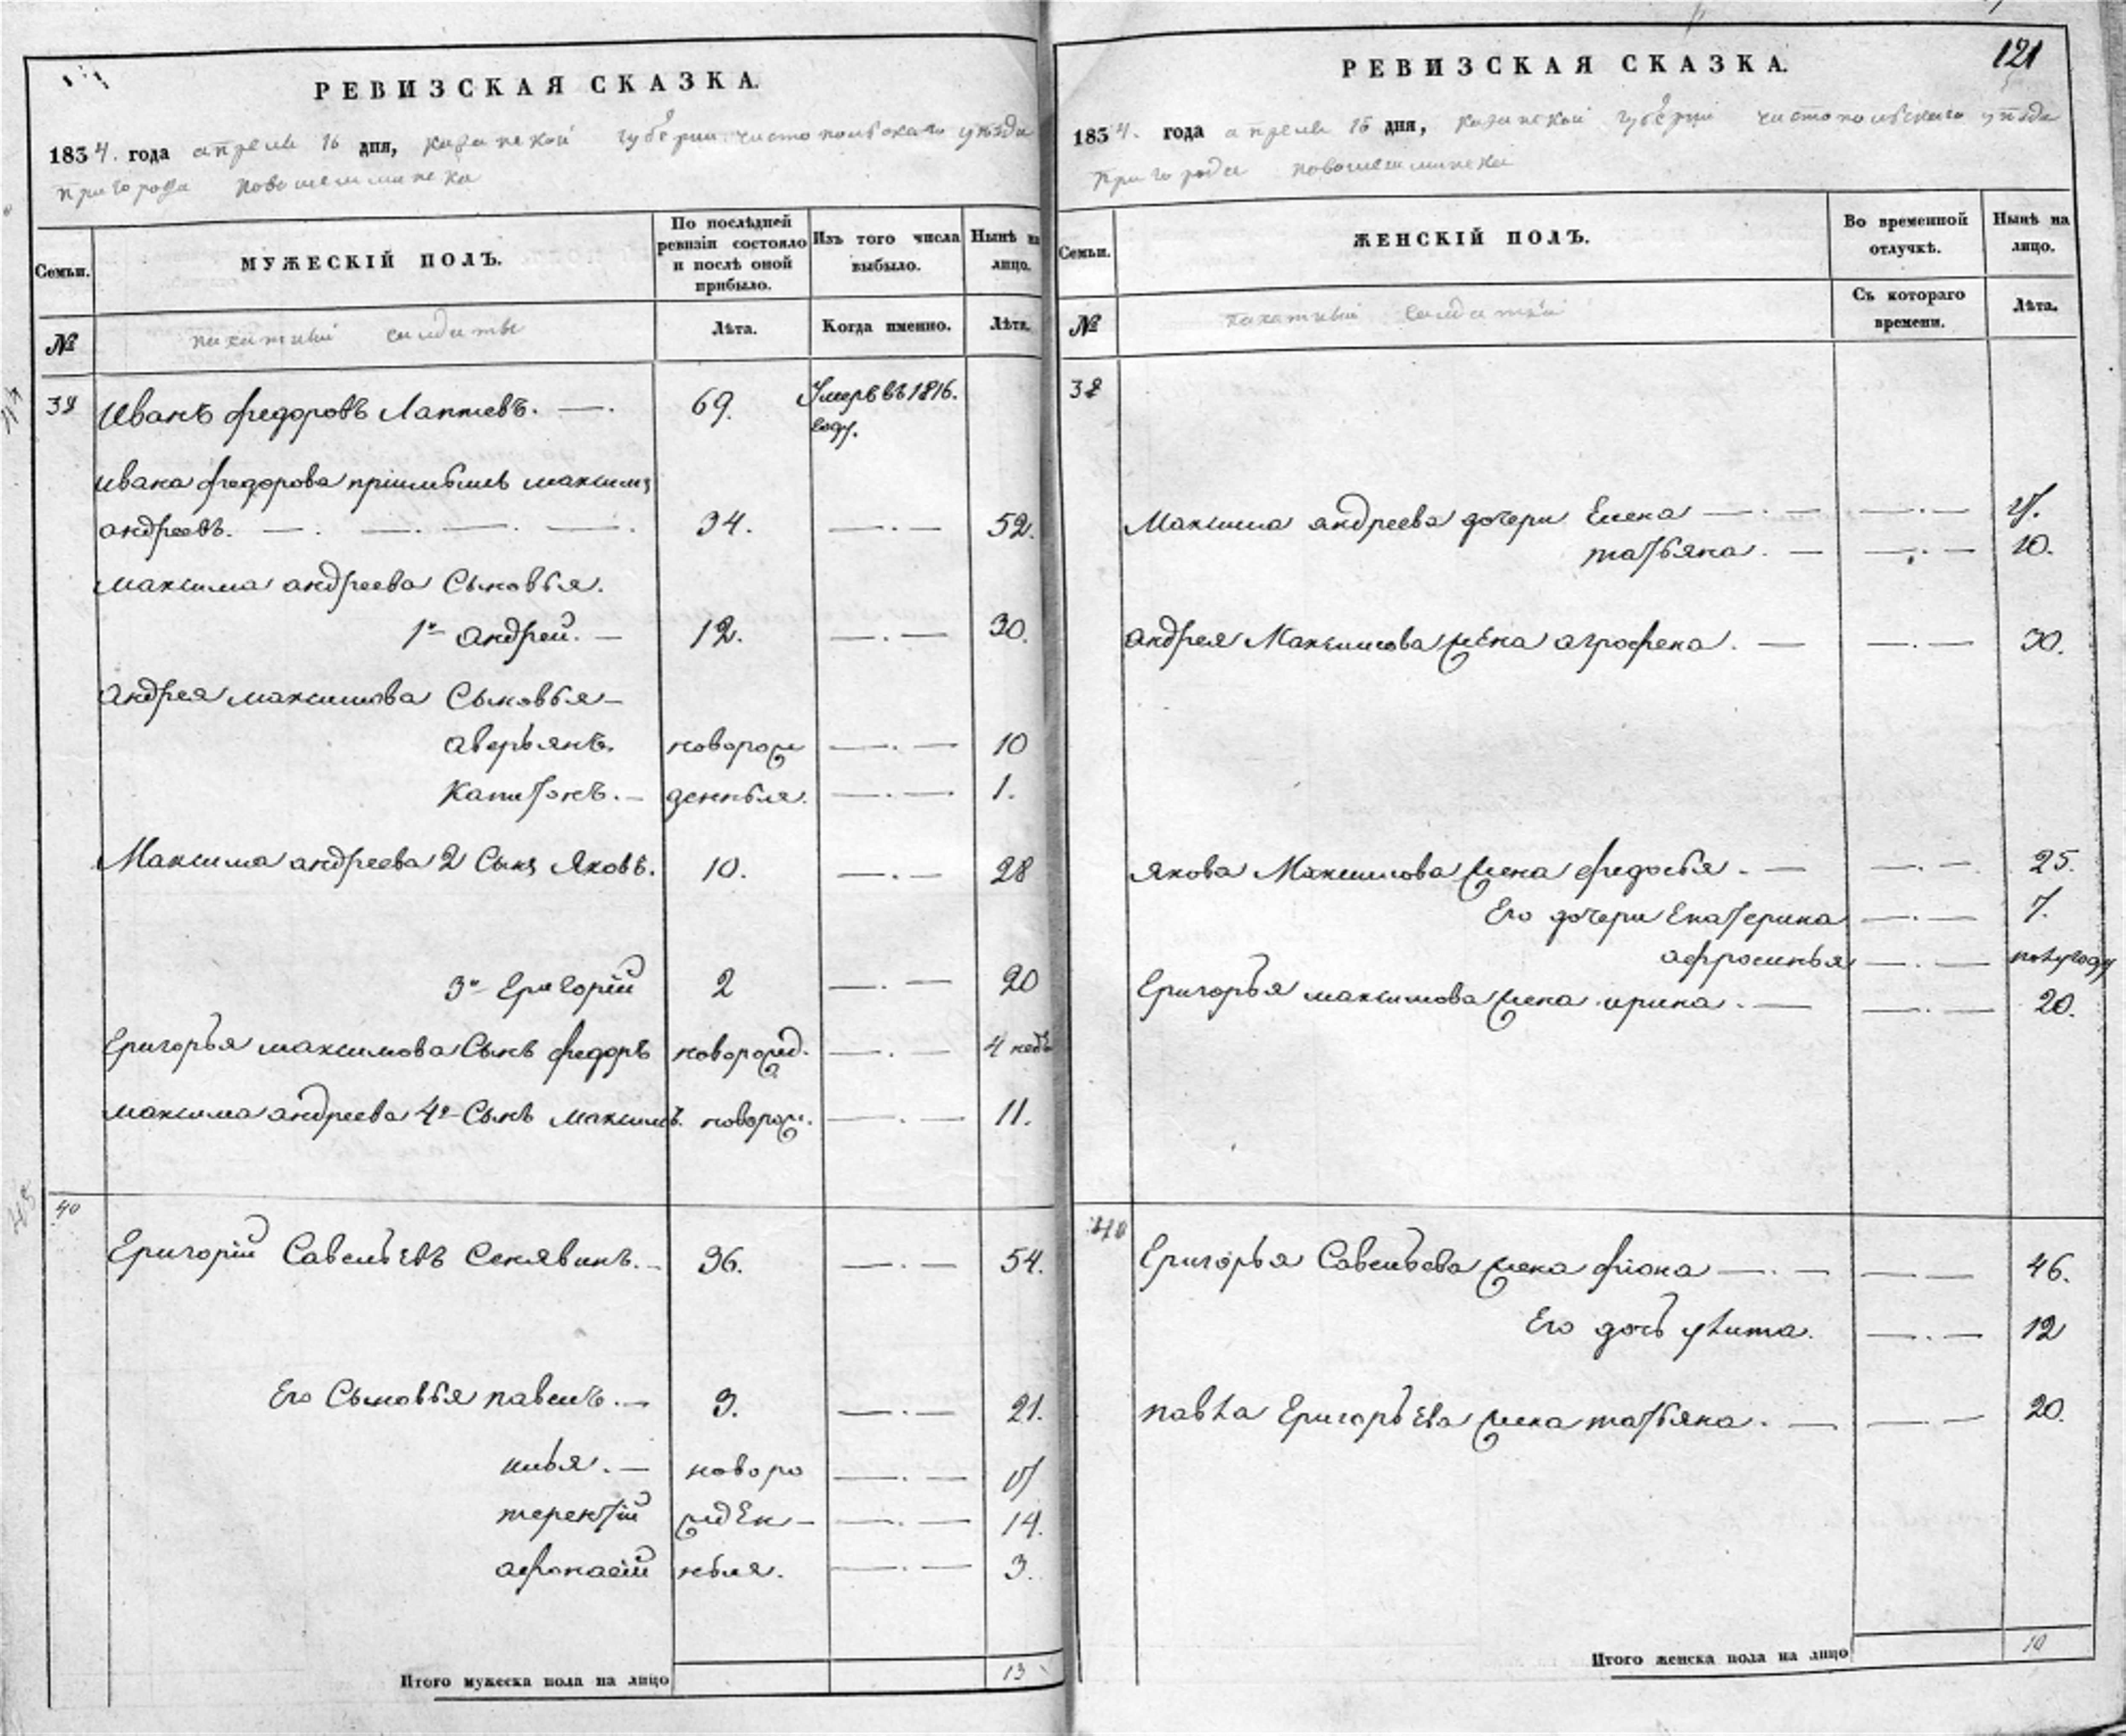 РЕВИЗСКАЯ СКАЗКА.
1834. года апреля 16 дня, казанской губернии чистопольскаго уезда
пригорода новошешминска
Семьи.
МУЖЕСКІЙ ПОЛЪ.
По послѣдней ревизіи состояло и послѣ оной прибыло.
Изъ того числа выбыло.
Нынѣ на лицо.
№
пахатные солдаты
Лѣта.
Когда именно.
Лѣта.
39 Иванъ федоровъ Лаптевъ. 69. Умеръ въ 1816. году.
ивана федорова пріимышъ максимъ
андреевъ. 34. 52.
максима андреева Сыновья.
1й андрей. 12. 30.
андрея максимова Сыновья
аверьянъ. новорож 10
капитонъ. денныя. 1.
Максима андреева 2 Сынъ Яковъ. 10. 28
3й Григорій 2 20
Григорья максимова Сынъ федоръ новорожд. 4 недѣ
максима андреева 4й Сынъ максимъ. новорож. 11.
40 Григорій Савельевъ Синявинъ. 36. 54.
Его Сыновья павелъ. 3. 21.
илья. новоро 17
терентій жден 14.
афонасій ныя. 3.
Итого мужеска пола на лицо 13
121
РЕВИЗСКАЯ СКАЗКА.
1834. года апреля 16 дня, казанской губерніи чистопольскаго уезда
пригорода новошешминска
Семьи.
ЖЕНСКІЙ ПОЛЪ.
Во временной отлучкѣ.
Нынѣ на лицо.
№
пахатныи солдатки
Съ котораго времени.
Лѣта.
39
Максима андреева дочери Елена 17.
татьяна. 10.
андрея Максимова жена аграфена. 30.
якова Максимова жена федосья. 25.
Его дочери Екатерина 7.
афросинья полугоду
Григорья максимова жена ирина. 20.
40 Григорья Савельева жена фіона 46.
Его дочь улита. 12
павла Григорьева жена татьяна. 20.
Итого женска пола на лицо 10